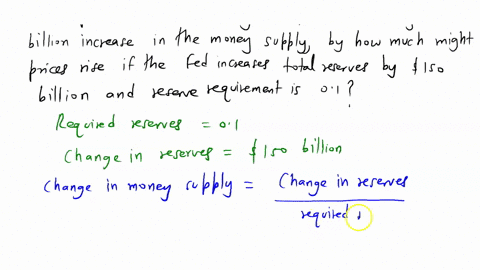 billion increase in the money supply, by how much might
prices rise if the Fed increases total reserves by $150
billion and reserve requirement is 0.1?
Required reserves = 0.1
Change in reserves = $150 billion
Change in money supply = Change in reserves
required